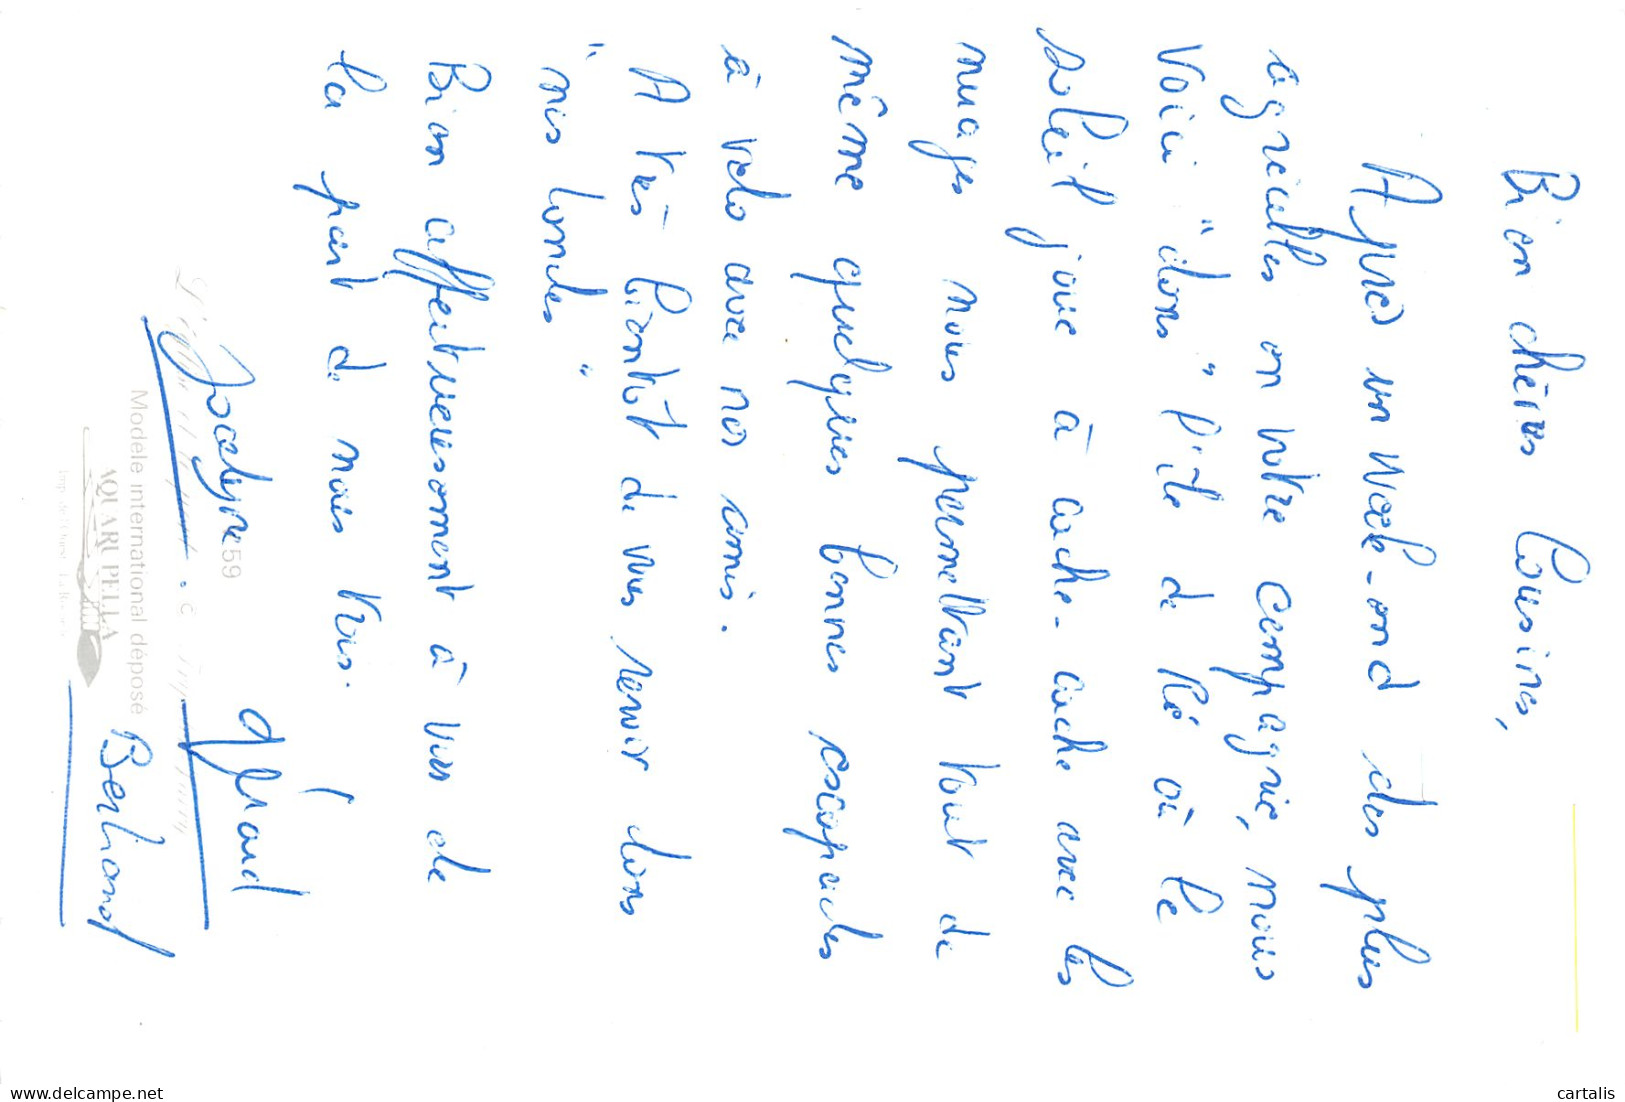 Bien chères Cousines,
Après un week-end des plus
agréables en votre compagnie, nous
voici "dans" l'île de Ré où le
soleil joue à cache-cache avec les
nuages nous permettant tout de
même quelques bonnes escapades
à vélo avec nos amis.
A très bientôt de vous revoir dans
"nos landes"
Bien affectueusement à vous de
la part de nous trois.
Jocelyne
Gérard
Bertrand
59
Modèle international déposé
AQUARUPELLA
cartalis